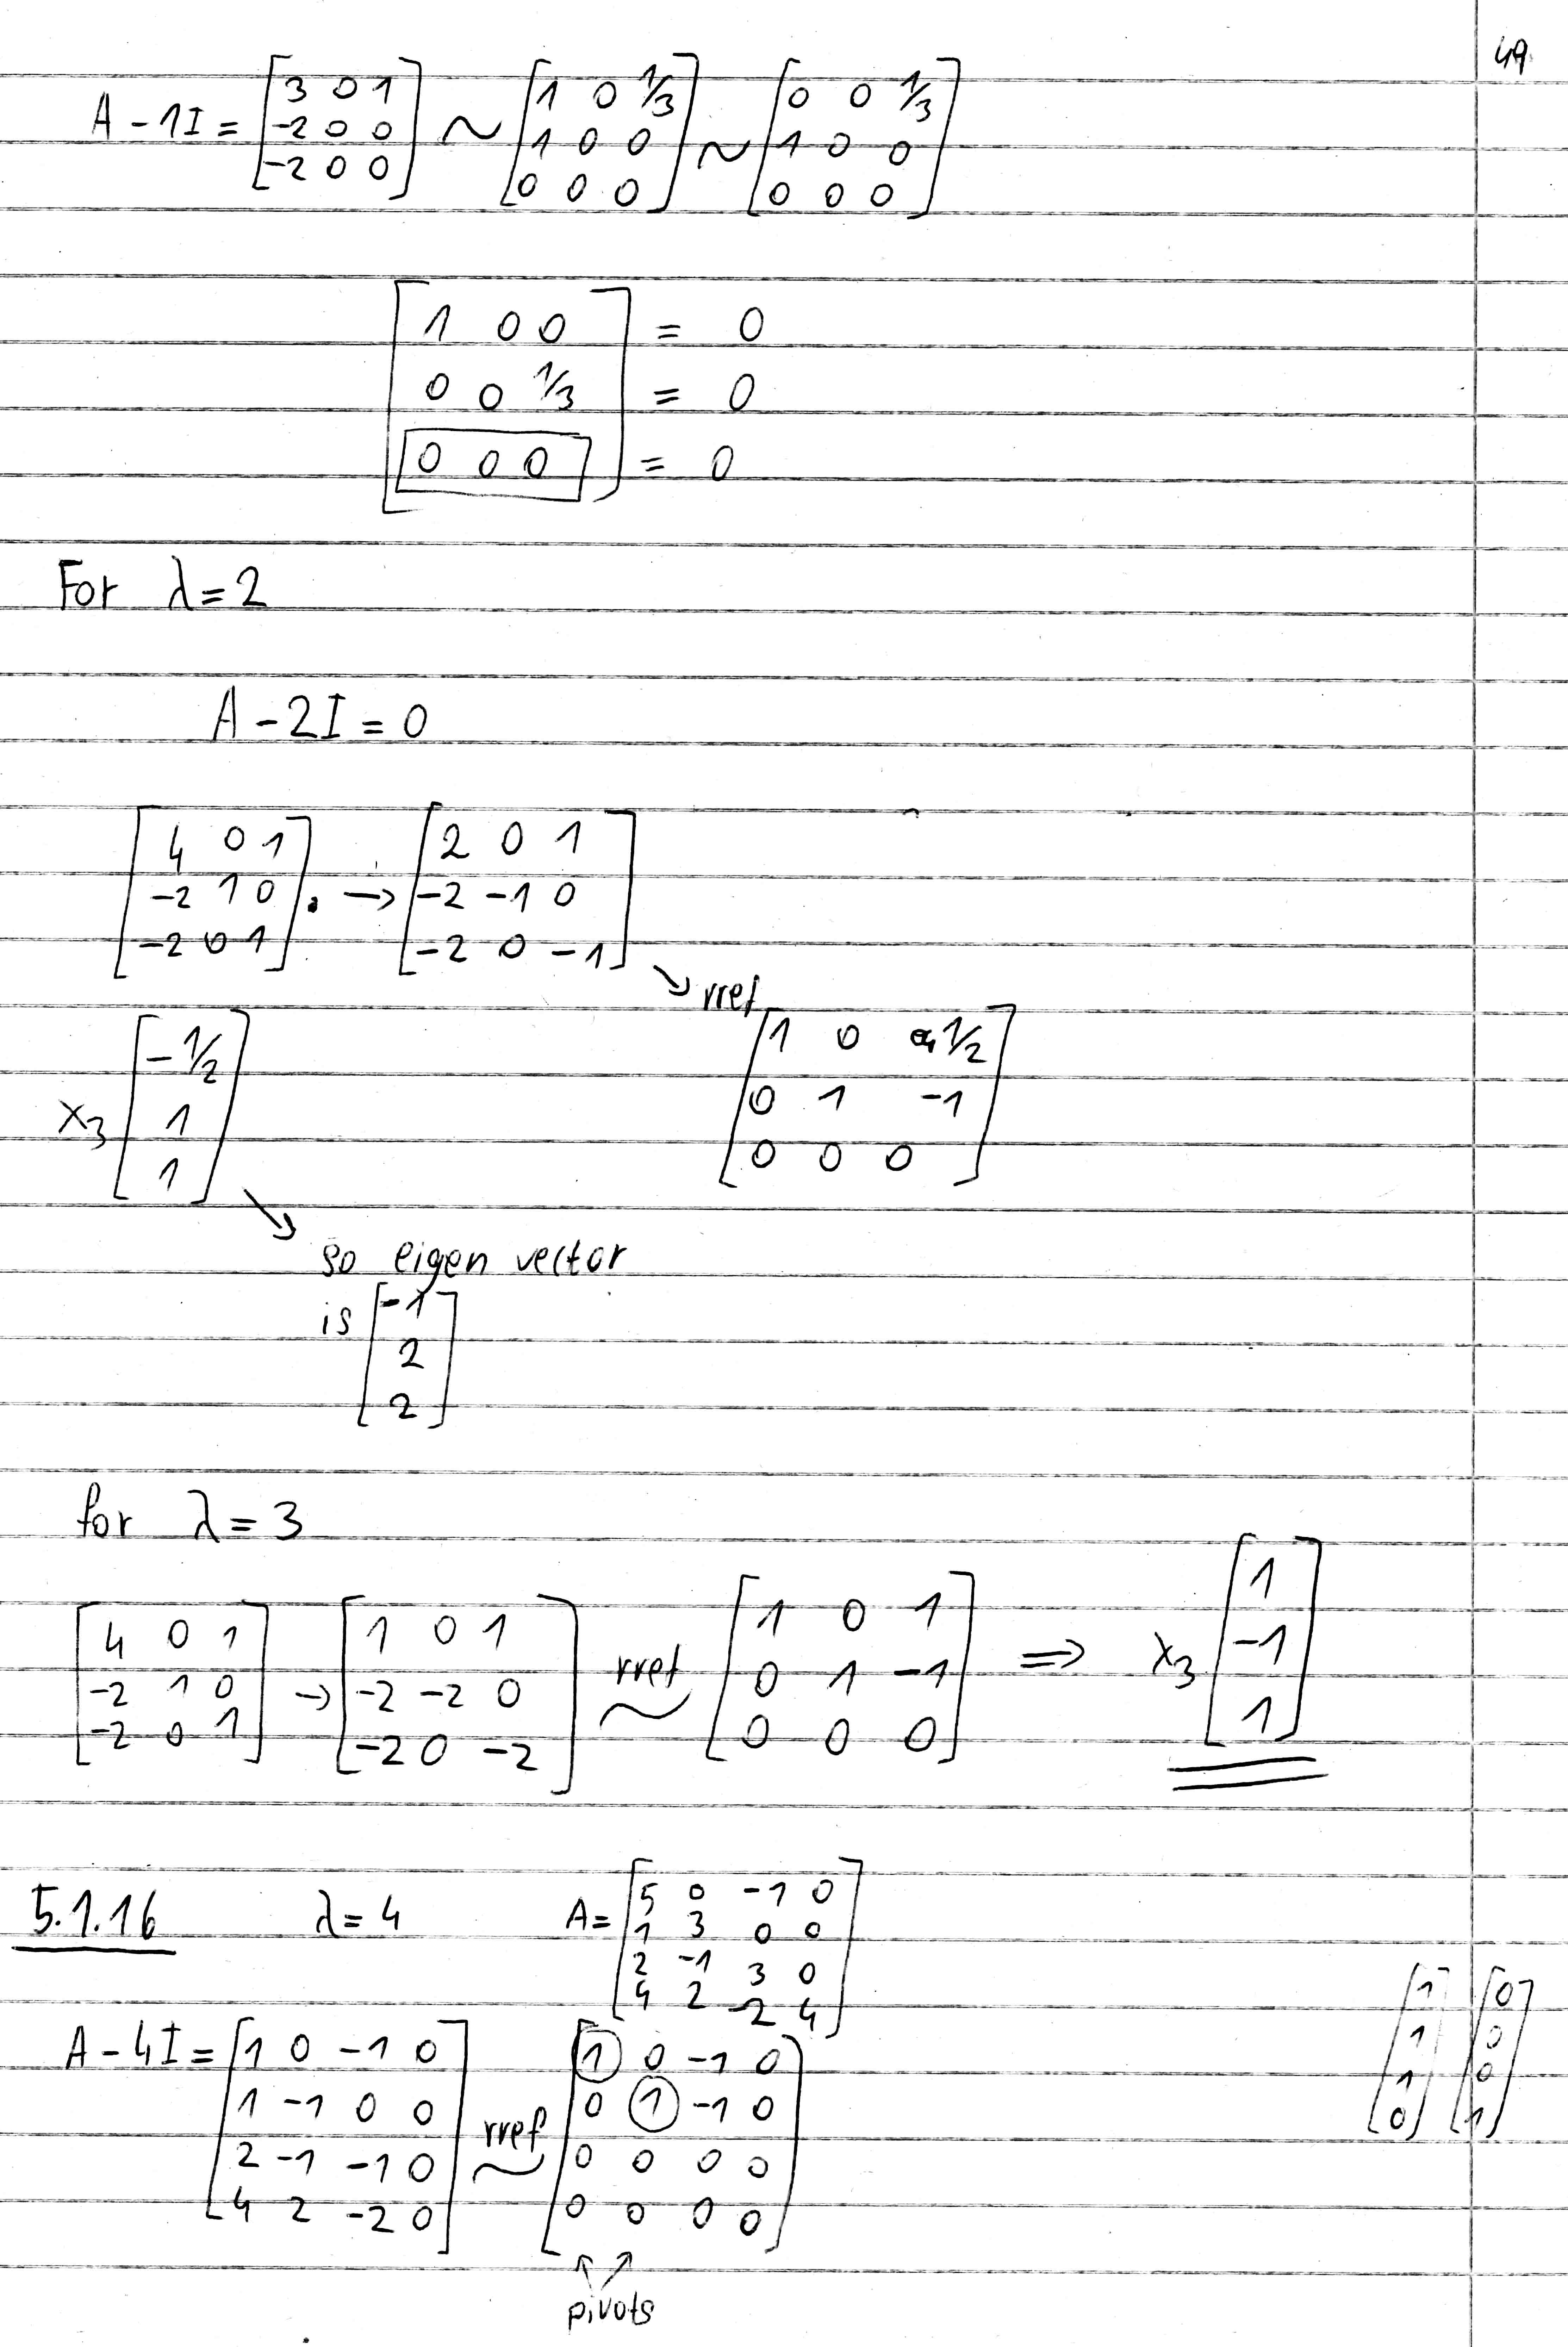 49
A - 1I = [3 0 1; -2 0 0; -2 0 0] ~ [1 0 1/3; 1 0 0; 0 0 0] ~ [0 0 1/3; 1 0 0; 0 0 0]
[1 0 0] = 0
[0 0 1/3] = 0
[0 0 0] = 0
For λ = 2
A - 2I = 0
[4 0 1; -2 1 0; -2 0 1] → [2 0 1; -2 -1 0; -2 0 -1]
↘ rref
x3 [-1/2; 1; 1] [1 0 1/2; 0 1 -1; 0 0 0]
↘ so eigen vector
is [-1; 2; 2]
for λ = 3
[4 0 1; -2 1 0; -2 0 1] → [1 0 1; -2 -2 0; -2 0 -2] rref ~ [1 0 1; 0 1 -1; 0 0 0] ⇒ x3 [1; -1; 1]
5.1.16 λ = 4 A = [5 0 -1 0; 1 3 0 0; 2 -1 3 0; 4 2 -2 4]
A - 4I = [1 0 -1 0; 1 -1 0 0; 2 -1 -1 0; 4 2 -2 0] rref ~ [1 0 -1 0; 0 1 -1 0; 0 0 0 0; 0 0 0 0] [1; 1; 1; 0] [0; 0; 0; 1]
↑ ↗
pivots